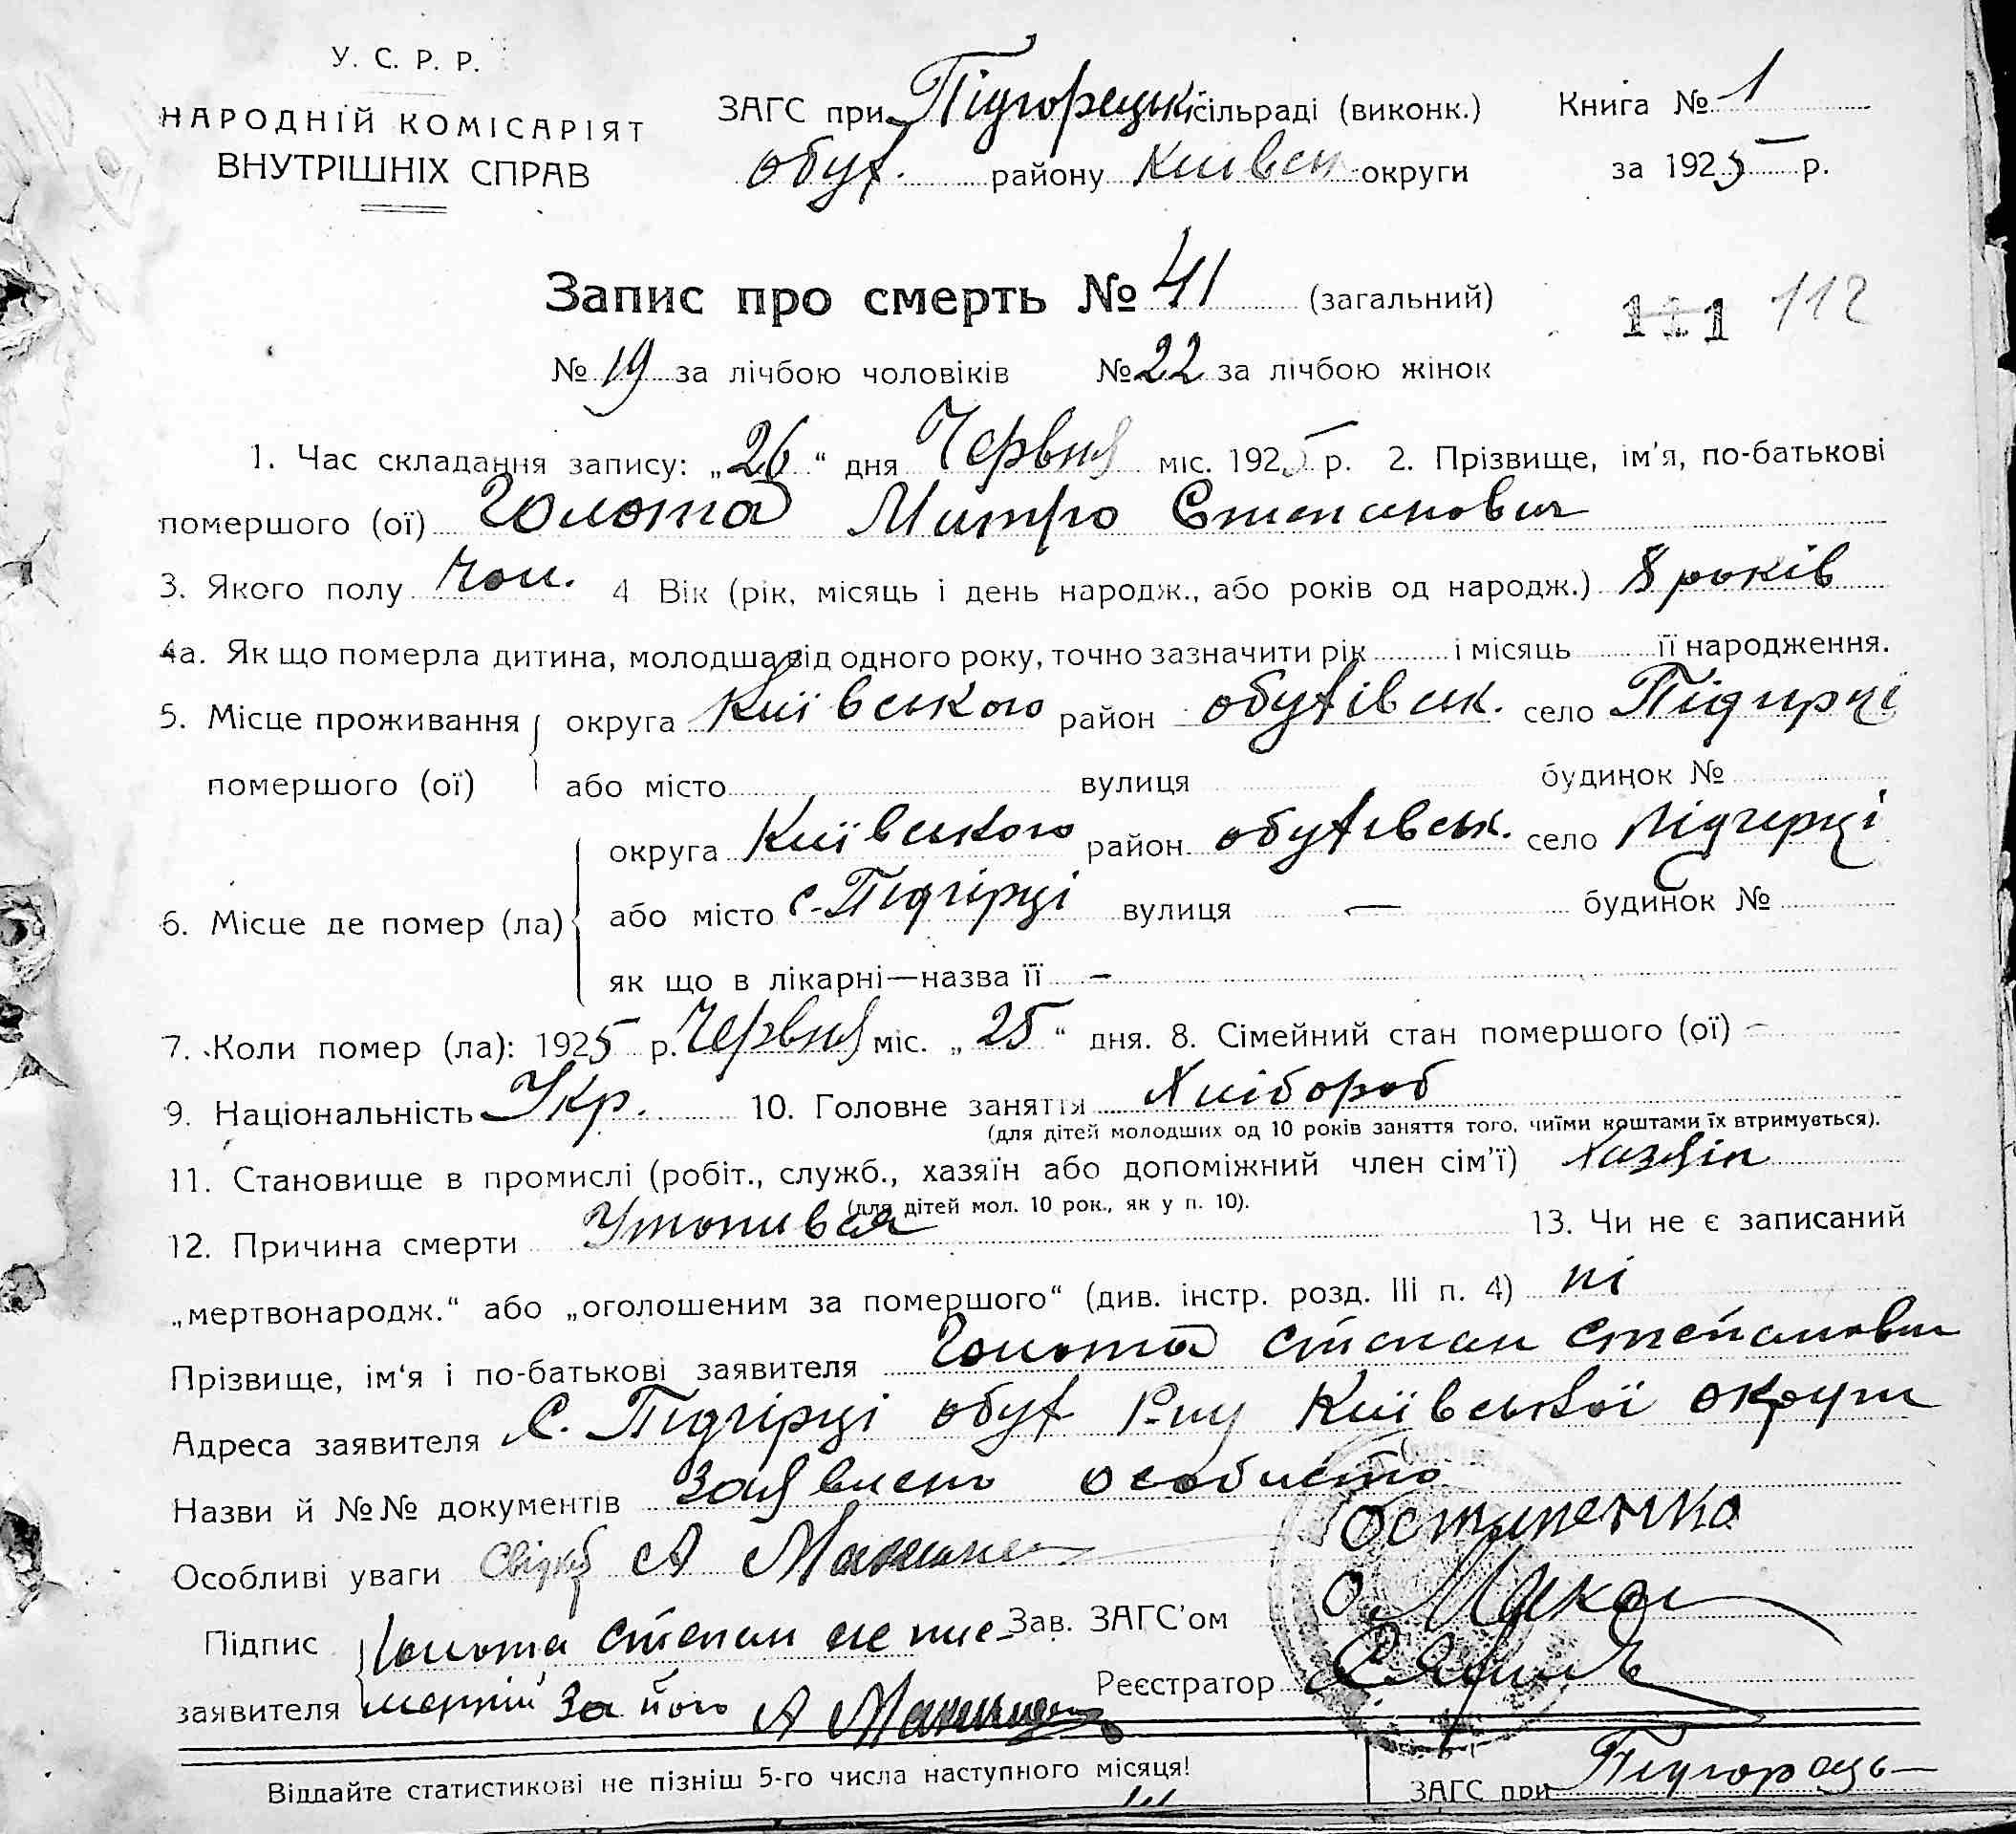 У. С. Р. Р.
НАРОДНІЙ КОМІСАРІЯТ
ВНУТРІШНІХ СПРАВ
ЗАГС при Підгорецькі сільраді (виконк.) Книга № 1
обух. району Київськ округи за 1925 р.
Запис про смерть № 41 (загальний)
111 112
№ 19 за лічбою чоловіків № 22 за лічбою жінок
1. Час складання запису: „26“ дня Червня міс. 1925 р. 2. Прізвище, ім'я, по-батькові
помершого (ої) Голота Митро Степанович
3. Якого полу чол. 4 Вік (рік, місяць і день народж., або років од народж.) 8 років
4а. Як що померла дитина, молодша від одного року, точно зазначити рік і місяць її народження.
5. Місце проживання округа Київського район обухівськ. село Підгірці
помершого (ої) або місто вулиця будинок №
округа Київського район обухівськ. село Підгірці
6. Місце де помер (ла) або місто с. Підгірці вулиця — будинок №
як що в лікарні—назва її —
7. Коли помер (ла): 1925 р. Червня міс. „25“ дня. 8. Сімейний стан помершого (ої) —
9. Національність Укр. 10. Головне заняття Хлібороб
(для дітей молодших од 10 років заняття того, чиїми коштами їх втримується).
11. Становище в промислі (робіт., служб., хазяїн або допоміжний член сім'ї) Хазяін
(для дітей мол. 10 рок., як у п. 10).
12. Причина смерти Утопився 13. Чи не є записаний
„мертвонародж.“ або „оголошеним за помершого“ (див. інстр. розд. III п. 4) ні
Прізвище, ім'я і по-батькові заявителя Голота Степан Степанович
Адреса заявителя С. Підгірці обух р-ну Київської округи
Назви й №№ документів Заявлено особисто
Особливі уваги Свідкб А
Підпис Голота Степан не пис- Зав. ЗАГС'ом
заявителя менний за його А Реєстратор
Віддайте статистикові не пізніш 5-го числа наступного місяця!
ЗАГС при Підгорець-